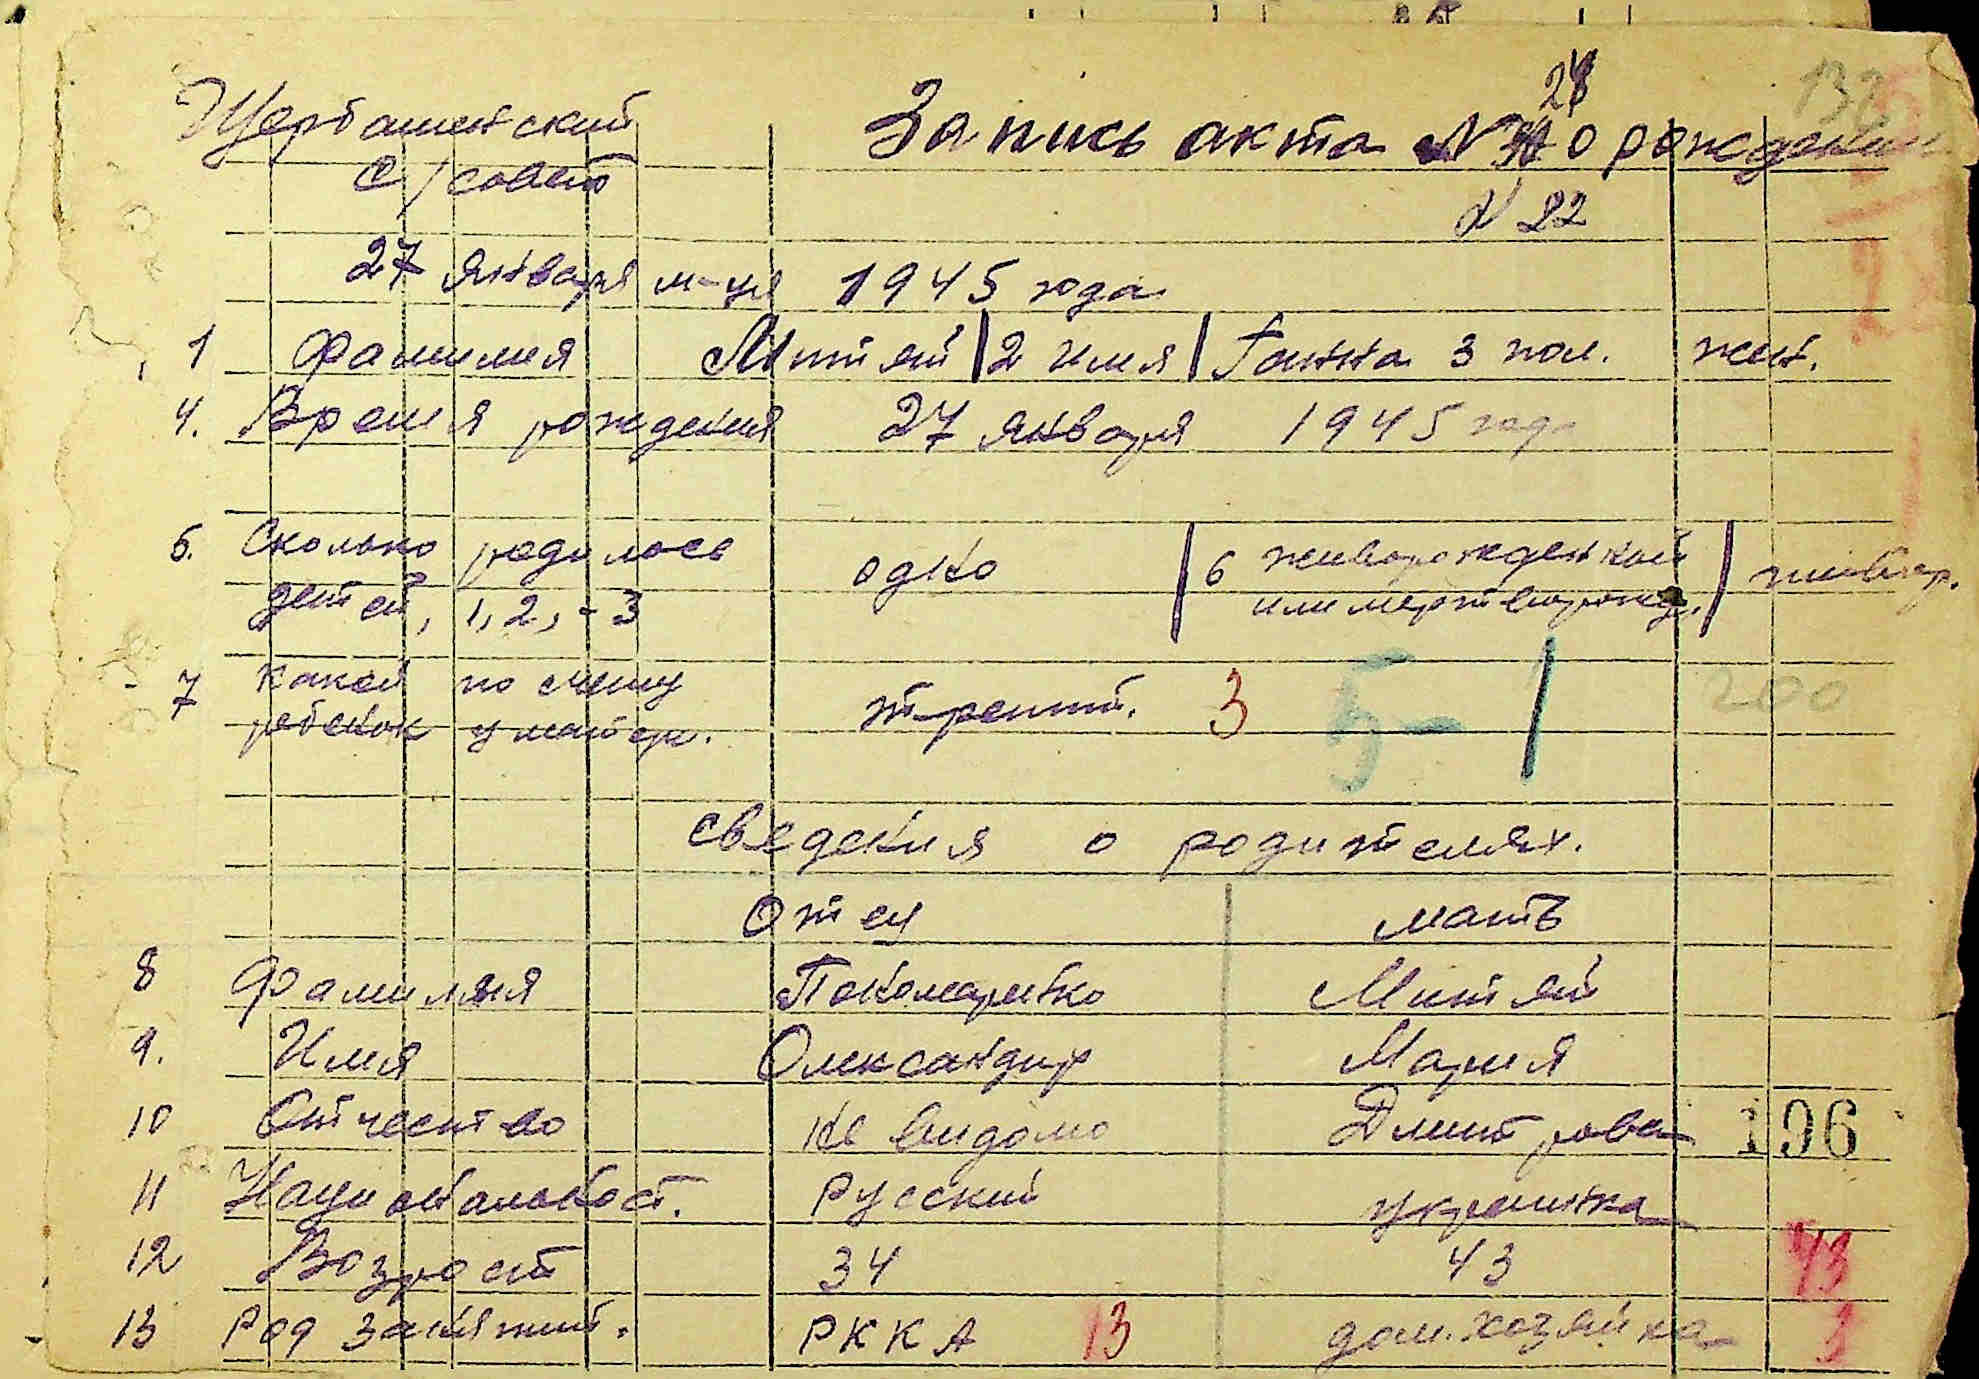 Щербашинский Запись акта № о рождении
с/совет № 22
27 января м-ця 1945 года
1 Фамилия Митяй | 2 имя | Ганна 3 пол. жен.
4. Время рождения 27 января 1945 года
5. Сколько родилось детей, 1, 2, - 3 одно | 6 живорожденной или мертворожд. | живор.
7 Какой по счету ребенок у матер. третит. 3 5-1 200
Сведения о родителях.
Отец мать
8 Фамилия Пономаренко Митяй
9. Имя Олександр Мария
10 Отчество не видомо Дмитрова 196
11 Национальност. Русский украинка
12 Возрост 34 43 43
13 Род занятит. РККА 13 дом. хозяйка 3